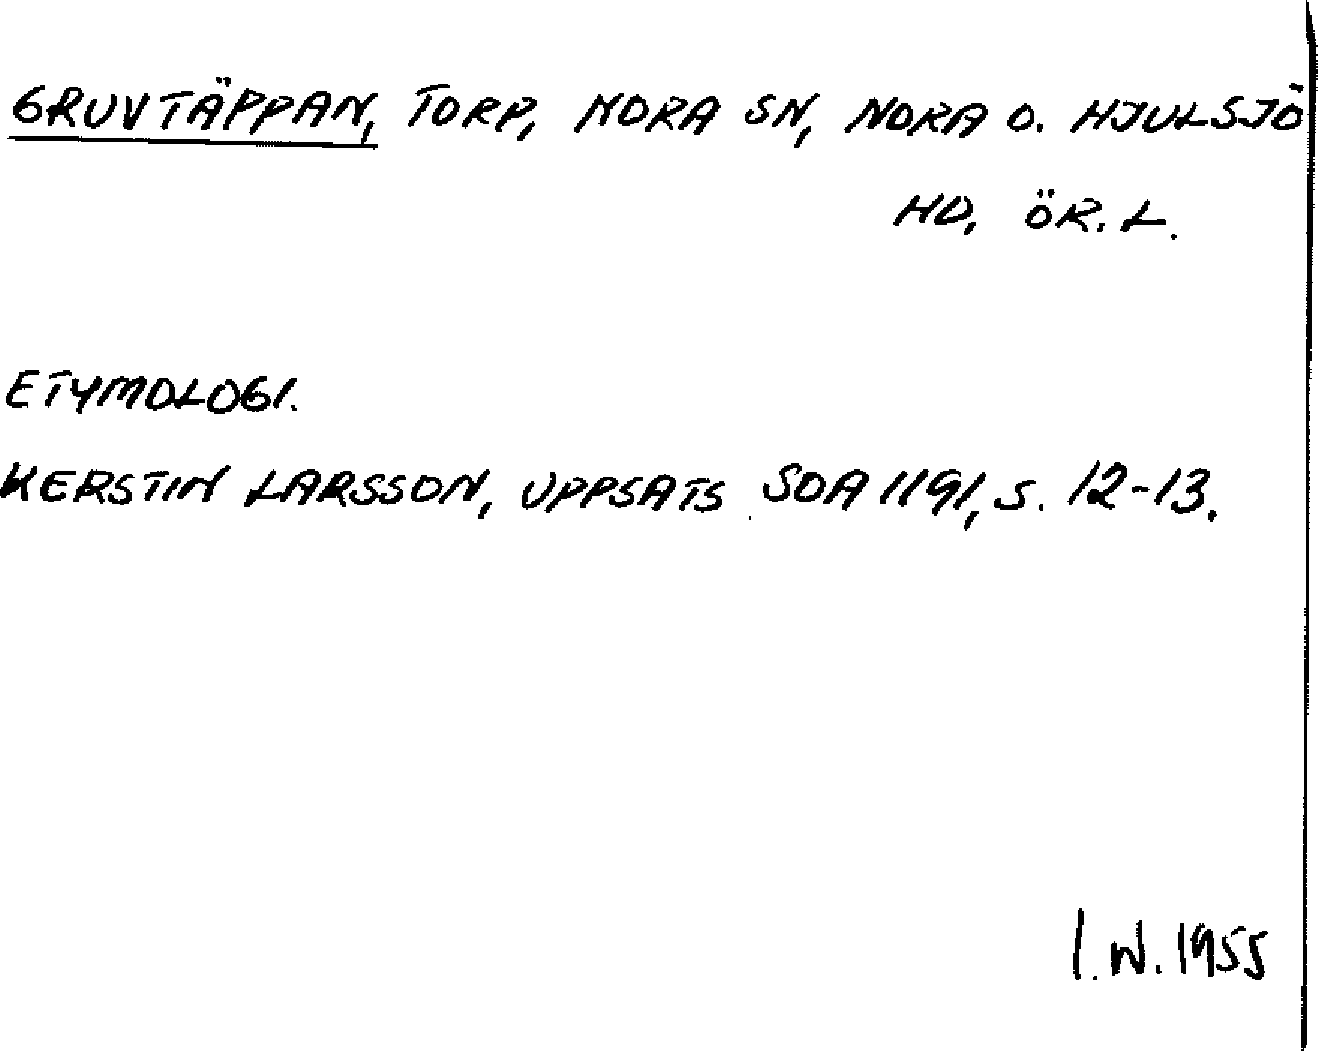 GRUVTÄPPAN, TORP, NORA SN, NORA O. HJULSJÖ
HD, ÖR. L.
ETYMOLOGI.
KERSTIN LARSSON, UPPSATS SOA 1191, S. 12-13.
I.W. 1955